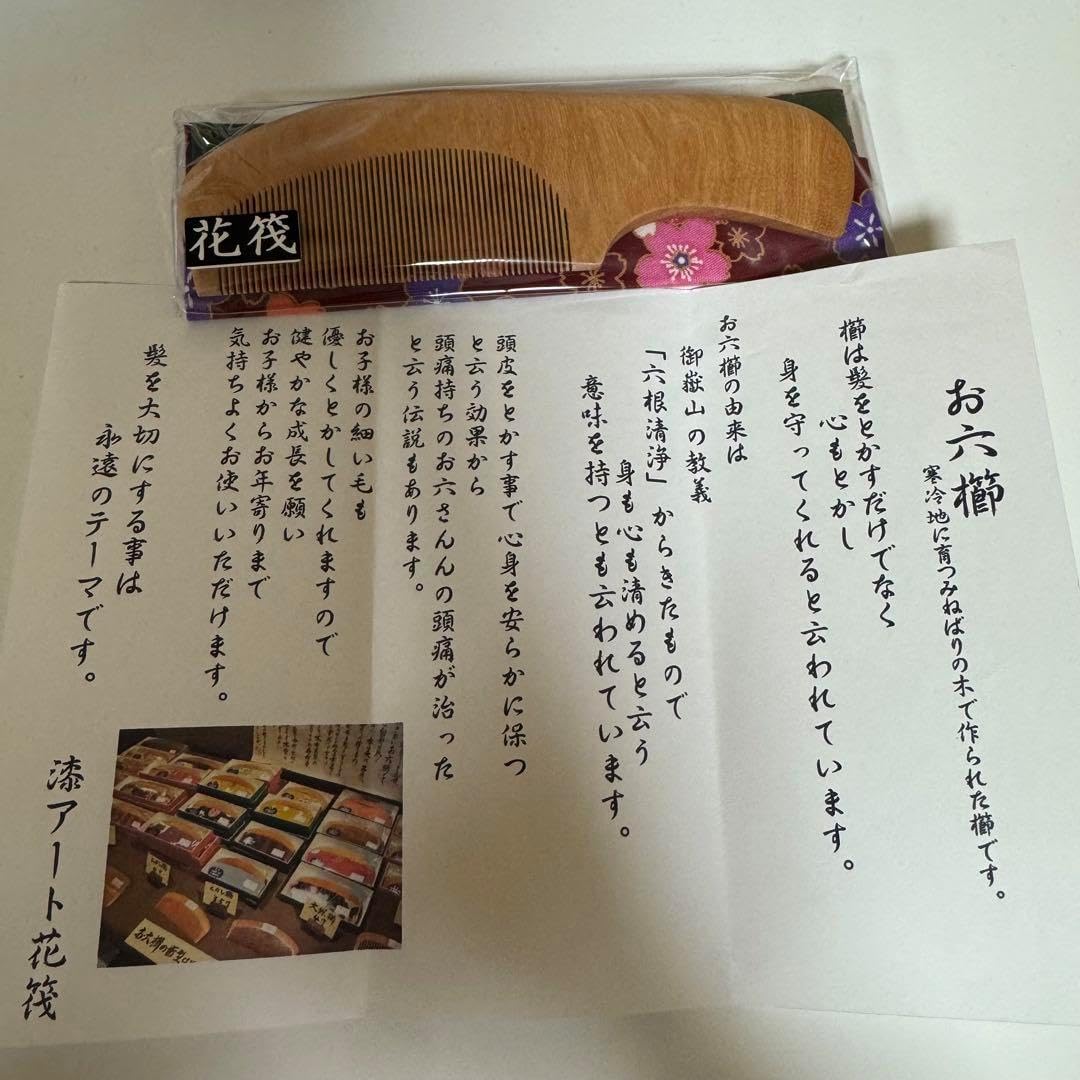 花筏
お六櫛
寒冷地に育つみねばりの木で作られた櫛です。
櫛は髪をとかすだけでなく
心もとかし
身を守ってくれると云われています。
お六櫛の由来は
御嶽山の教義
「六根清浄」からきたもので
身も心も清めると云う
意味を持つとも云われています。
頭皮をとかす事で心身を安らかに保つ
と云う効果から
頭痛持ちのお六さんんの頭痛が治った
と云う伝説もあります。
お子様の細い毛も
優しくとかしてくれますので
健やかな成長を願い
お子様からお年寄りまで
気持ちよくお使いいただけます。
髪を大切にする事は
永遠のテーマです。
漆アート花筏